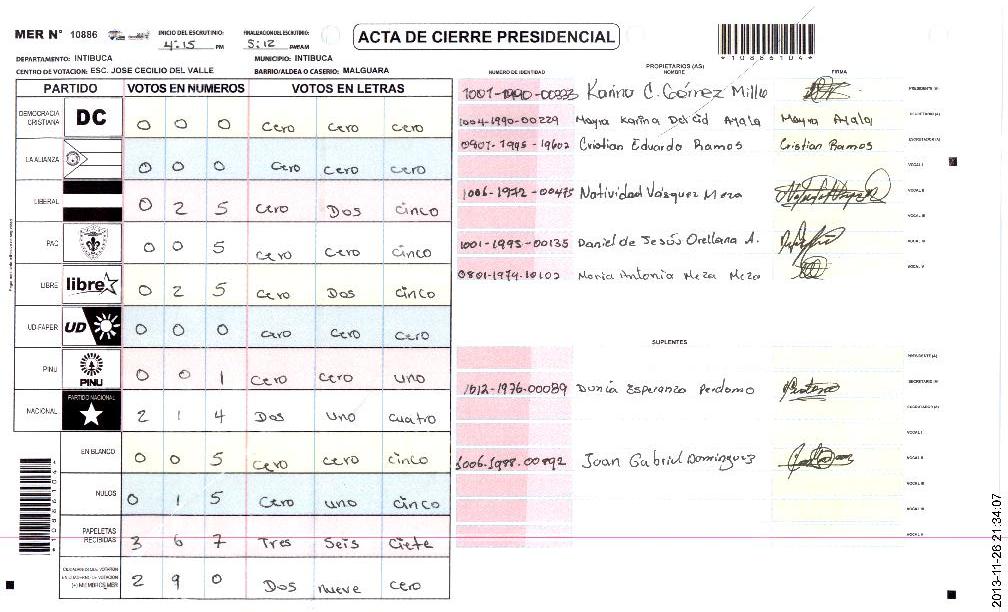 MER N° 10886 INICIO DEL ESCRUTINIO: 4:15 PM FINALIZACION DEL ESCRUTINIO: 5:12 PM/EAM
ACTA DE CIERRE PRESIDENCIAL
*10886104*
DEPARTAMENTO: INTIBUCA MUNICIPIO: INTIBUCA
CENTRO DE VOTACION: ESC. JOSE CECILIO DEL VALLE BARRIO/ALDEA O CASERIO: MALGUARA
PARTIDO VOTOS EN NUMEROS VOTOS EN LETRAS
DEMOCRACIA CRISTIANA DC 0 0 0 cero cero cero
LA ALIANZA 0 0 0 cero cero cero
LIBERAL 0 2 5 cero Dos cinco
PAC 0 0 5 cero cero cinco
LIBRE libre 0 2 5 cero Dos cinco
UD-FAPER UD 0 0 0 cero cero cero
PINU PINU 0 0 1 cero cero uno
NACIONAL PARTIDO NACIONAL 2 1 4 Dos uno cuatro
EN BLANCO 0 0 5 cero cero cinco
NULOS 0 1 5 cero uno cinco
PAPELETAS RECIBIDAS 3 6 7 Tres Seis Ciete
CIUDADANOS QUE VOTARON EN CUADERNO DE VOTACION (+) MIEMBROS MER 2 9 0 Dos nueve cero
*10886104*
PROPIETARIOS (AS)
NUMERO DE IDENTIDAD NOMBRE FIRMA
1007-1990-00333 Karina C. Gómez Millo PRESIDENTE (A)
1004-1990-00229 Mayra Karina Del cid Ayala Mayra Ayala SECRETARIO (A)
0907-1995-19602 Cristian Eduardo Ramos Cristian Ramos ESCRUTADOR (A)
VOCAL I
1006-1972-00475 Natividad Vasquez Meza VOCAL II
VOCAL III
1001-1993-00135 Daniel de Jesús Orellana A. VOCAL IV
0801-1974-10102 Maria Antonia Meza Meza VOCAL V
SUPLENTES
PRESIDENTE (A)
1012-1976-00089 Dunia Esperanza Perdomo SECRETARIO (A)
ESCRUTADOR (A)
VOCAL I
1006-1988-00892 Joan Gabriel Dominguez VOCAL II
VOCAL III
VOCAL IV
VOCAL V
2013-11-26 21:34:07